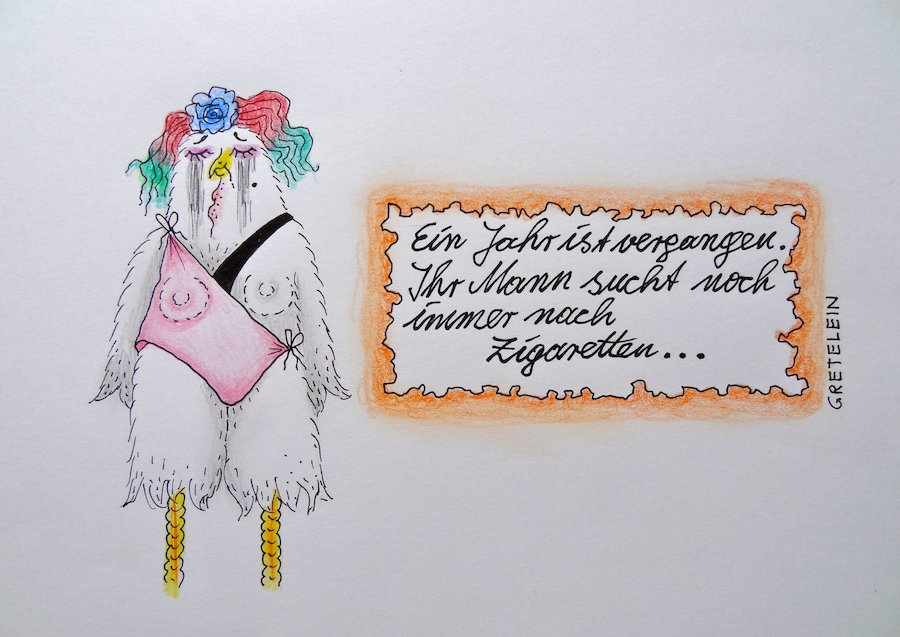 Ein Jahr ist vergangen.
Ihr Mann sucht noch
immer nach
Zigaretten...
GRETELEIN